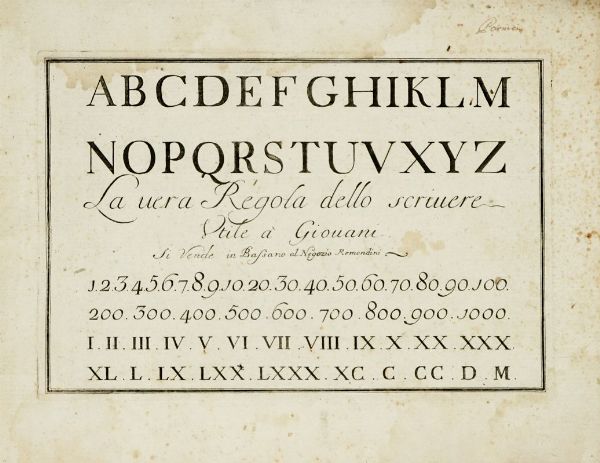 ABCDEFGHIKLM
NOPQRSTUVXYZ
La uera Regola dello scriuere
Vtile à Giouani
Si Vende in Bassano al Negozio Remondini
1.2.3.4.5.6.7.8.9.10.20.30.40.50.60.70.80.90.100.
200.300.400.500.600.700.800.900.1000.
I.II.III.IV.V.VI.VII.VIII.IX.X.XX.XXX.
XL.L.LX.LXX.LXXX.XC.C.CC.D.M.